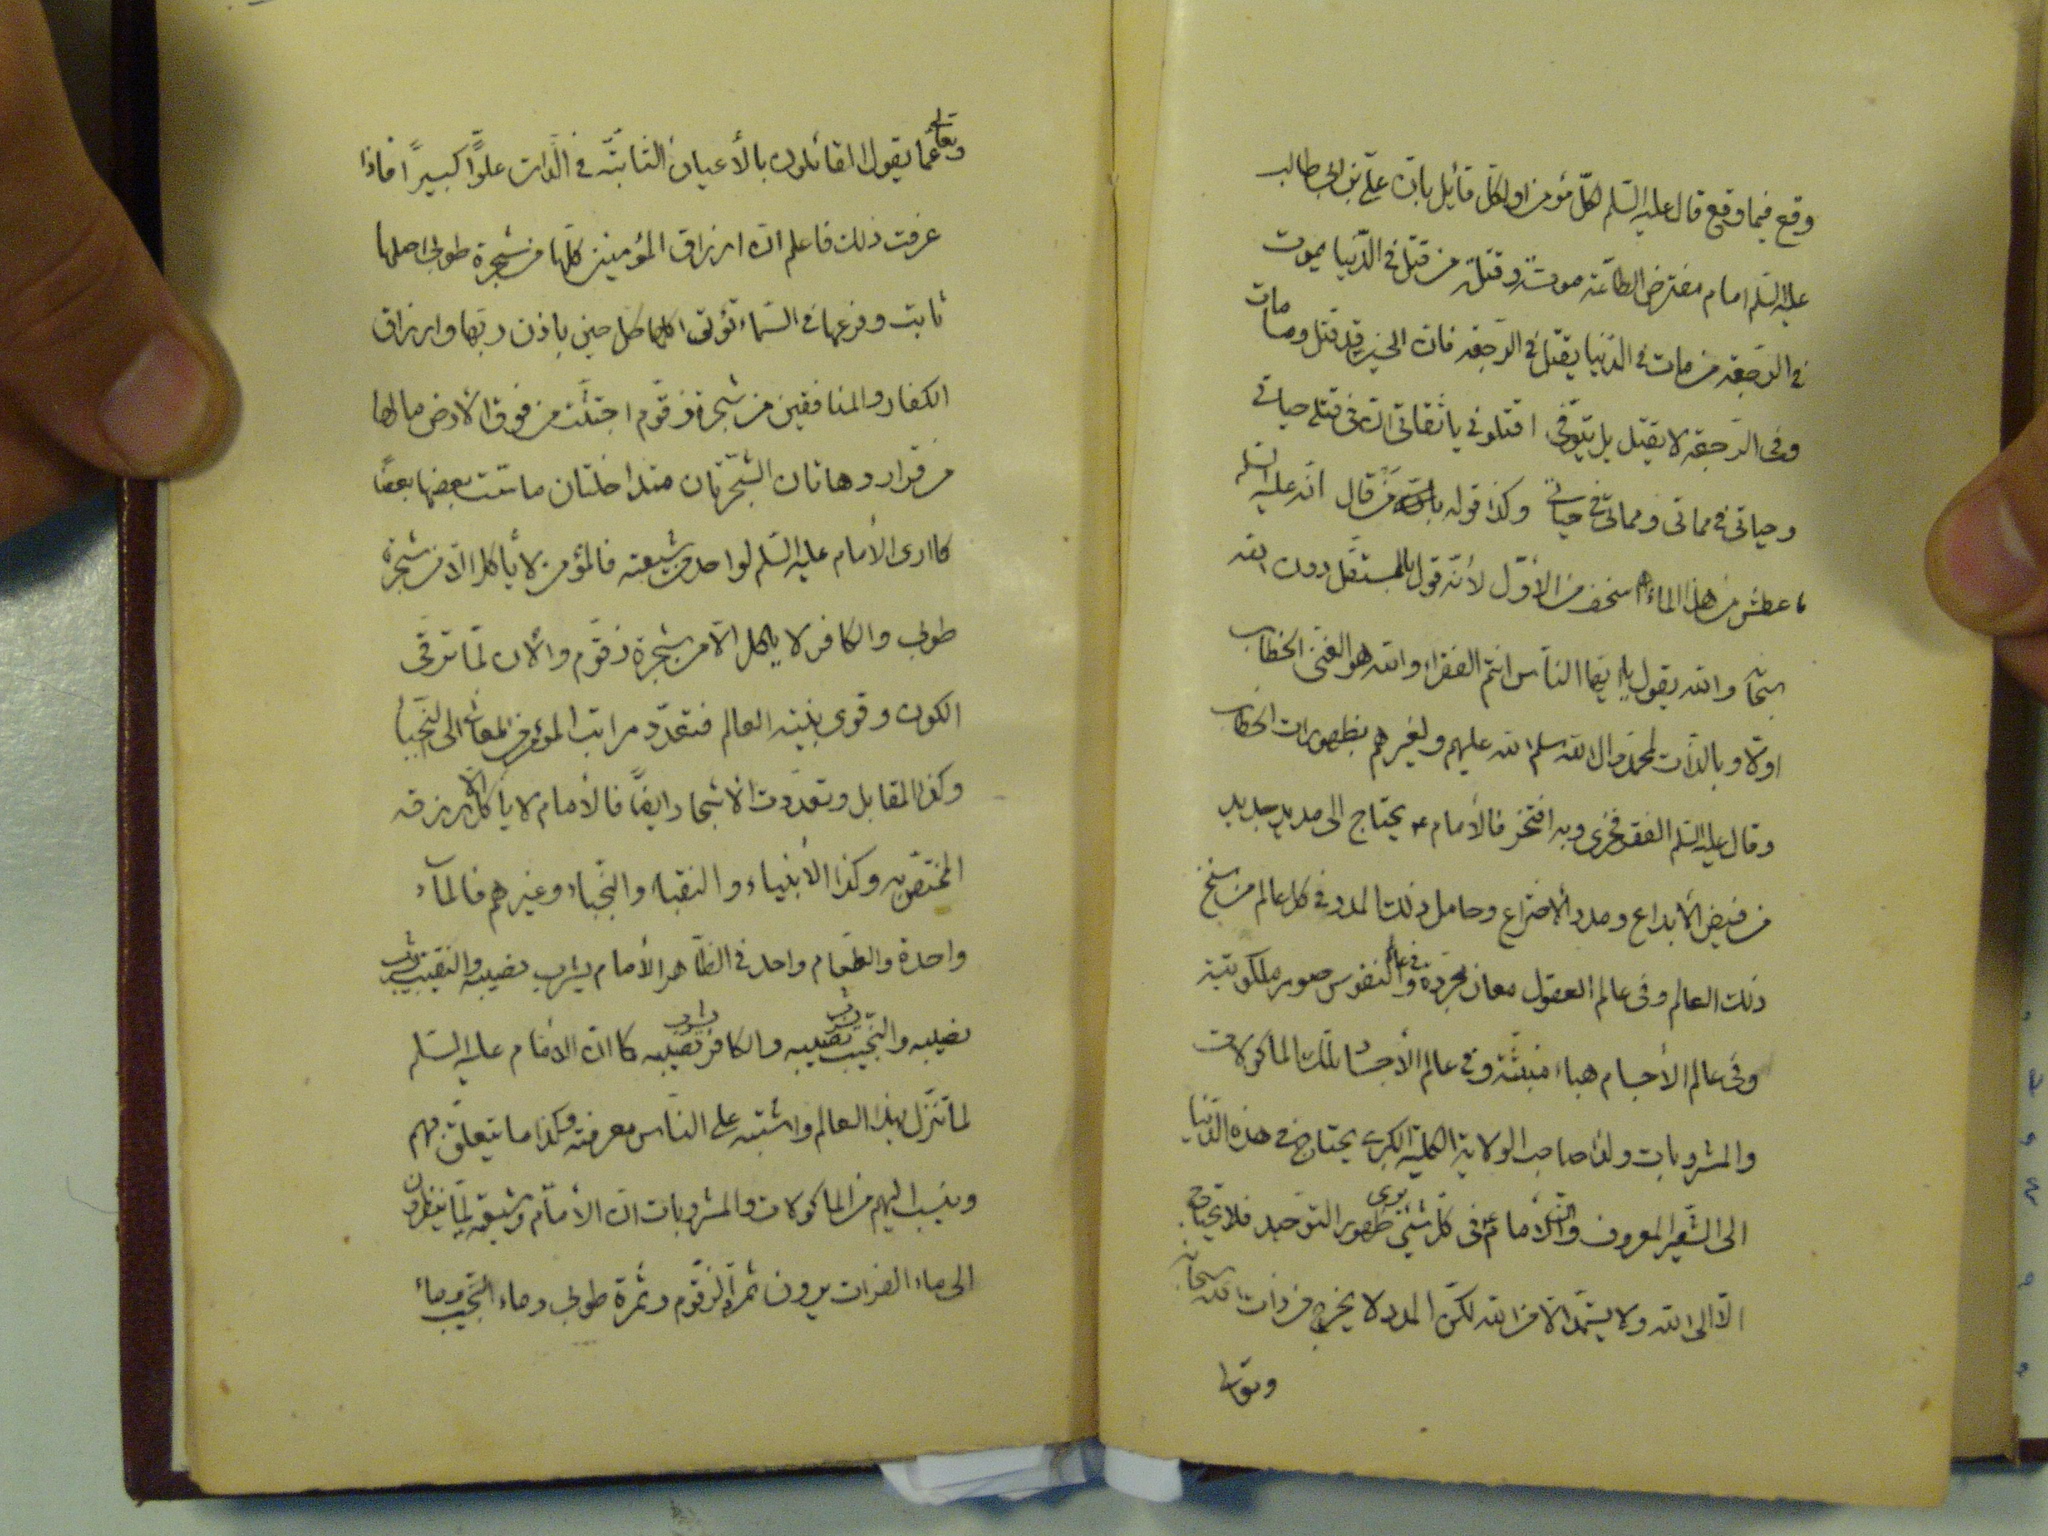 وقع فيما وقع قال عليه السّلم لكلّ مؤمن اولكلّ قائل بانّ علّي بن ابي طالب
عليه السّلم امام مفترض الطاعة موتة وقتلة من قتل في الدّنيا يموت
في الرّجعة من مات في الدّنيا يقتل في الرّجعة فان الحسين قد قتل وما مات
وفي الرّجعة لا يقتل بل يتوفّى اقتلوني يا ثقاتي انّ في قتلي حياتي
وحياتي في مماتي ومماتي في حياتي وكذا قوله من قال انّه عليه السّلم
عطش من هذا الماء اسخف من الأوّل لأنّه قول بالمستقل دون الله
سبحانه والله يقول يا ايّها النّاس انتم الفقراء والله هو الغنّي الخطاب
اولا وبالذّات لمحمّد وال الله سلم الله عليهم ولغيرهم بظهورات الخطاب
وقال عليه السّلم الفقر فخري وبه افتخر فالأمام ع يحتاج الى مدد جديد
من فيض الأبداع ومدد الأختراع وحامل ذلك المدد في كل عالم من سنخ
ذلك العالم وفي عالم العقول معان مجرّدة وفي عالم النفوس صور ملكوتية
وفي عالم الأجسام هباء منبثّة وفي عالم الأجساد تلك الماكولات
والمشروبات ولذا صاحب الولاية الكليّة الكبرى يحتاج في هذه الدّنيا
الى الشّعير المعروف والأمام ع يرى في كلّ شيئ ظهور التوحيد فلا يحتاج
الّا الى الله ولا يستمدّ الّا من الله لكنّ المدد لا يخرج من ذات الله سبحانه
وتعالى
وتعالى عمّا يقول القائلون بالأعيان الثّابتة في الذّات علوًّا كبيرًا فاذا
عرفت ذلك فاعلم انّ ارزاق المؤمنين كلّها من شجرة طوبى اصلها
ثابت وفرعها في السّماء تؤتى اكلها كل حين باذن ربّها وارزاق
الكفار والمنافقين من شجرة زقّوم اجتثّت من فوق الأرض مالها
من قرار وهاتان الشّجرتان متداخلتان ماسّت بعضها بعضًا
كما ارى الأمام عليه السّلم لواحد من شيعته فالمؤمن لا يأكل الّا من شجرة
طوبى والكافر لا ياكل الّا من شجرة زقّوم والأن لمّا ترقّى
الكون وقوى بنية العالم فتعدّد مراتب المؤمن الى النّجبا
وكذا المقابل وتعدّدت الأشجار ايضًا فالأمام لا ياكل الّا رزقه
المختصّ به وكذا الأنبياء والنقباء والنّجباء وغيرهم فالماء
واحدة والطّعام واحد في الظّاهر الأمام يشرب نصيبه والنقيب يشرب
نصيبه والنّجيب يشرب نصيبه والكافر يشرب نصيبه كما انّ الأمام عليه السّلم
لمّا تنزّل بهذا العالم واشتبه على النّاس معرفته وكذا ما يتعلّق بهم
وينسب اليهم من الماكولات والمشروبات انّ الأمام وشيعته لمّا ينظرون
الى ماء الفرات يرون ثمرة الزّقوم وثمرة طوبى وماء النّجيب وماء